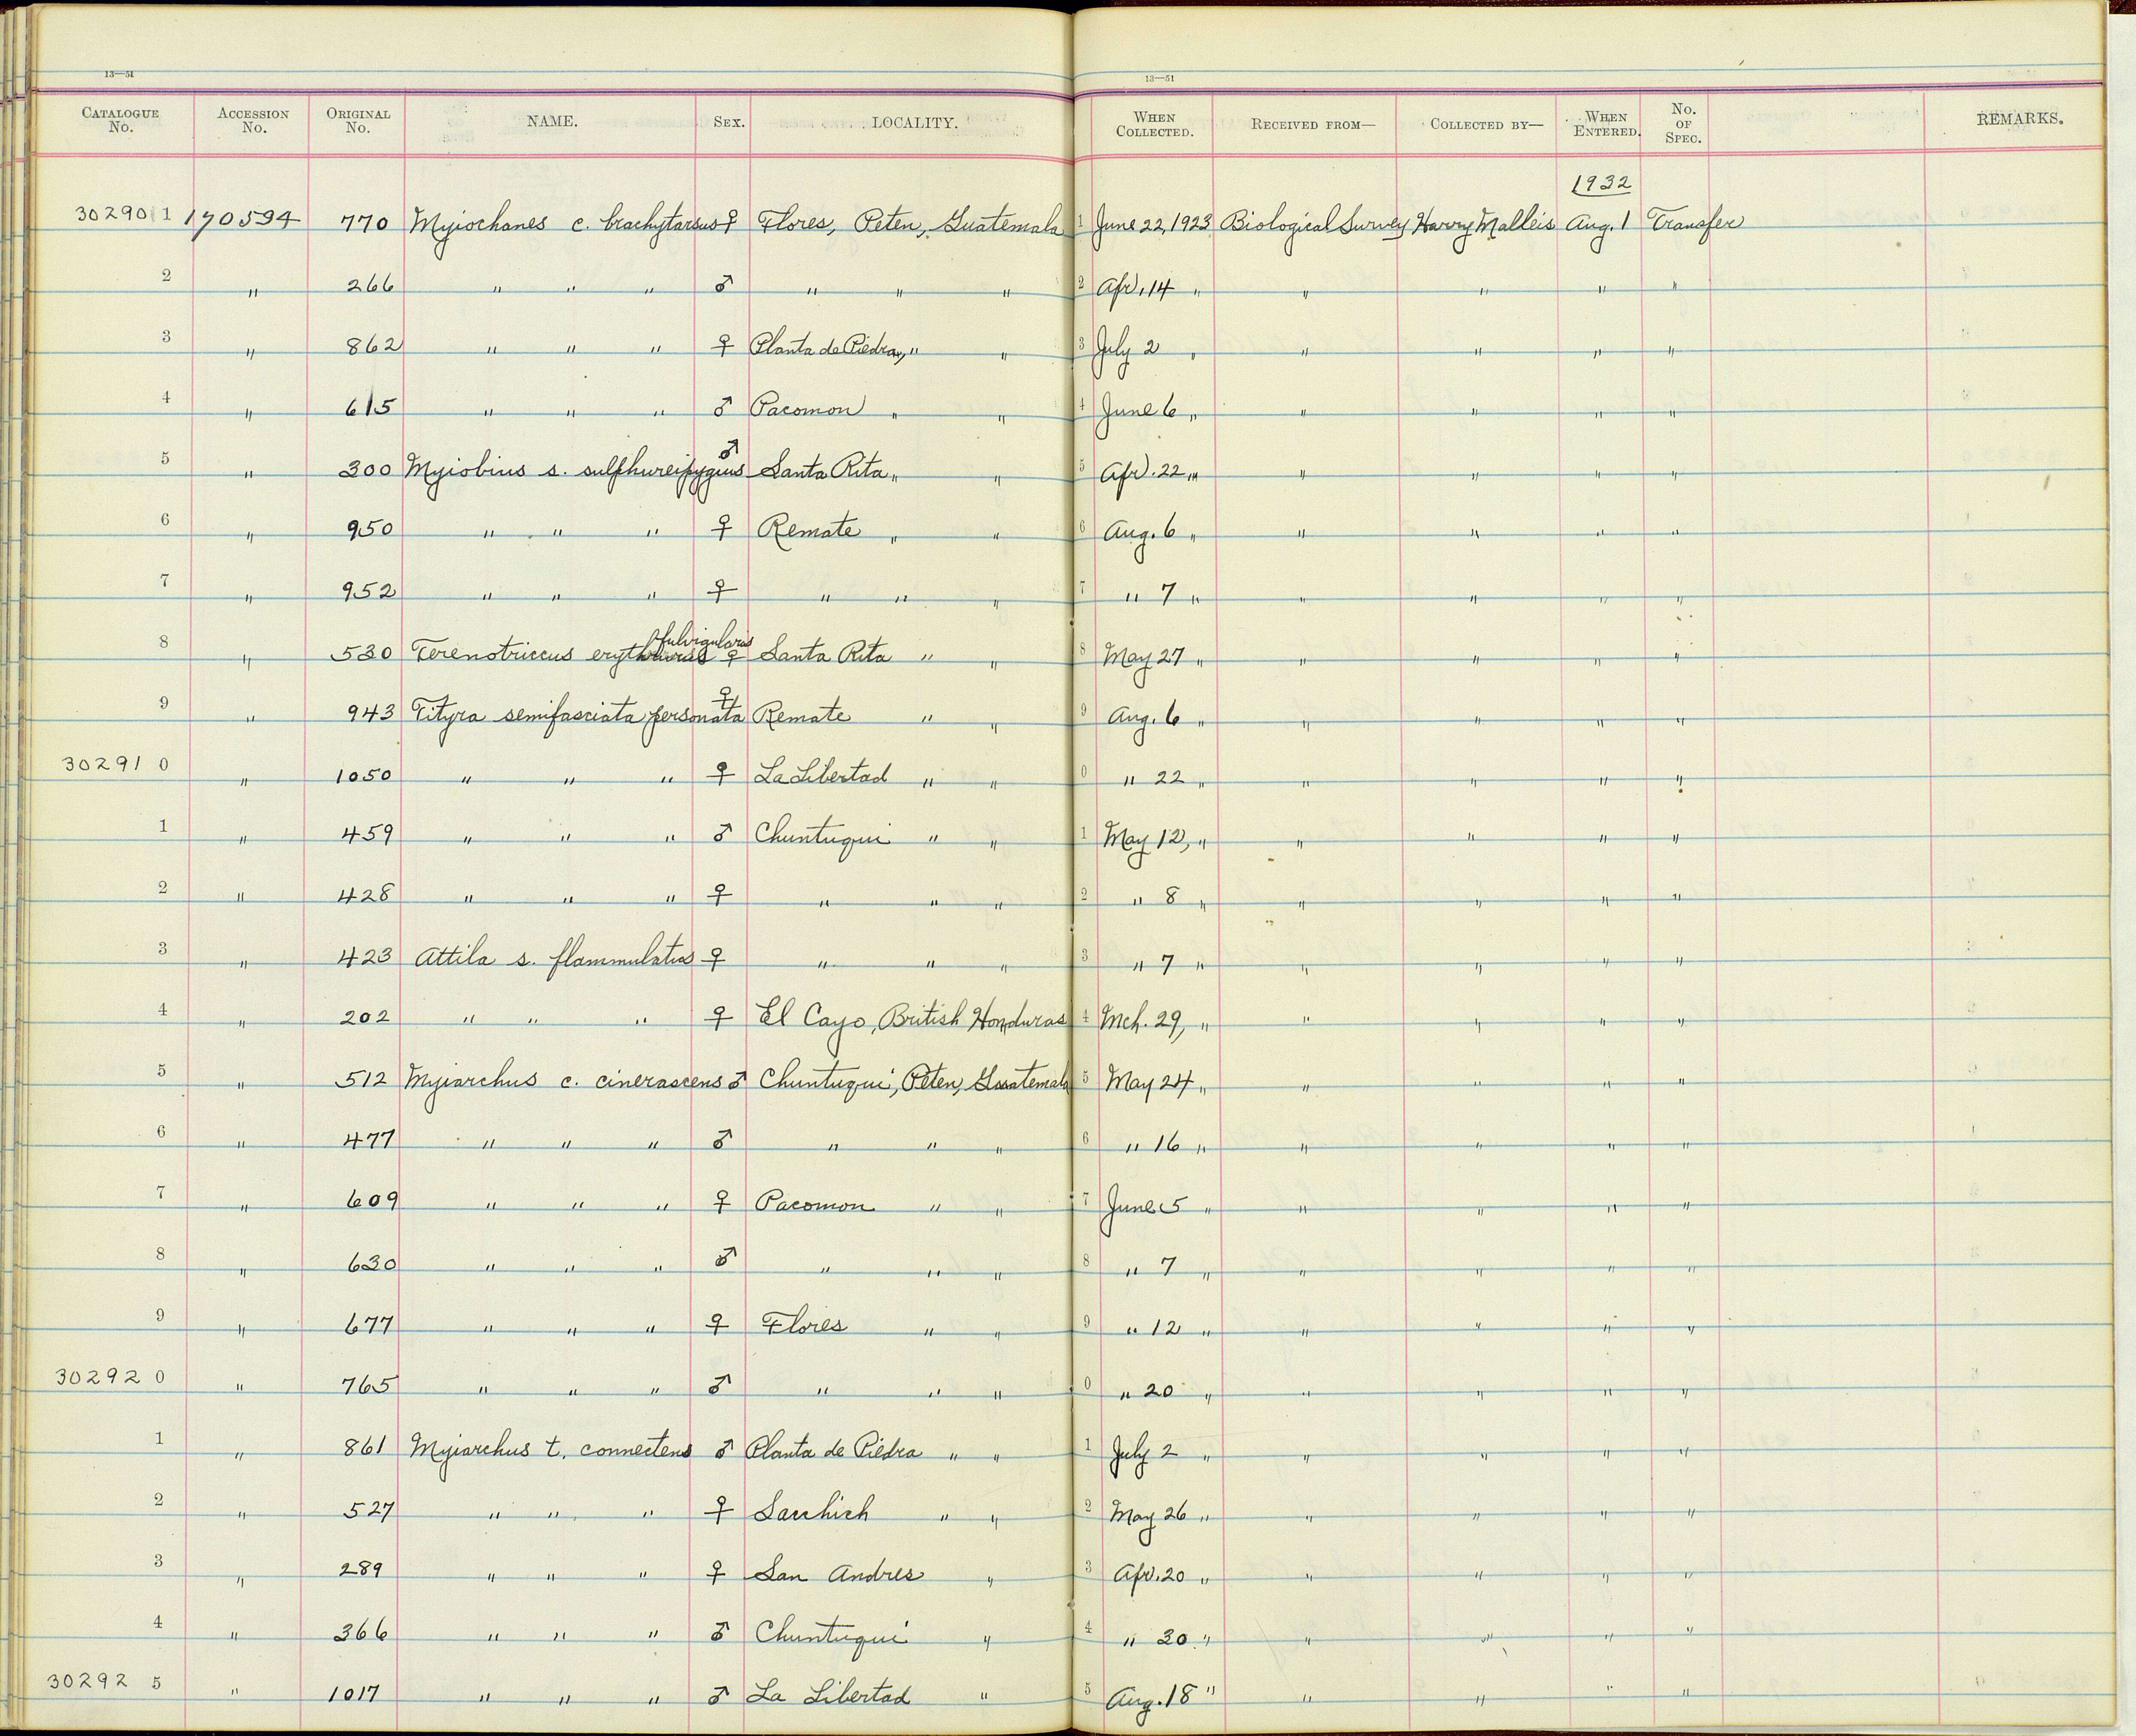 13—51 13—51
CATALOGUE No. ACCESSION No. ORIGINAL No. NAME. SEX. LOCALITY. WHEN COLLECTED. RECEIVED FROM— COLLECTED BY— WHEN ENTERED. No. OF SPEC. REMARKS.
1932
302901 170594 770 Myiochanes c. brachytarsus ♀ Flores, Peten, Guatemala 1 June 22, 1923 Biological Survey Harry Malleis Aug. 1 Transfer
2 " 266 " " " ♂ " " " 2 Apr. 14 " " " " "
3 " 862 " " " ♀ Planta de Piedra, " " 3 July 2 " " " " "
4 " 615 " " " ♂ Pacomon " " 4 June 6 " " " " "
5 " 300 Myiobius s. sulphureipygius ♂ Santa Rita " " 5 Apr. 22 " " " " "
6 " 950 " " " ♀ Remate " " 6 Aug. 6 " " " " "
7 " 952 " " " ♀ " " " 7 " 7 " " " " "
8 " 530 Terenotriccus erythrurus fulvigularis ♀ Santa Rita " " 8 May 27 " " " " "
9 " 943 Tityra semifasciata personata ♀ Remate " " 9 Aug. 6 " " " " "
302910 " 1050 " " " ♀ La Libertad " " 0 " 22 " " " " "
1 " 459 " " " ♂ Chuntuqui " " 1 May 12, " " " " "
2 " 428 " " " ♀ " " " 2 " 8 " " " " "
3 " 423 Attila s. flammulatus ♀ " " " 3 " 7 " " " " "
4 " 202 " " " ♀ El Cayo, British Honduras 4 Mch. 29, " " " " "
5 " 512 Myiarchus c. cinerascens ♂ Chuntuqui, Peten, Guatemala 5 May 24 " " " " "
6 " 477 " " " ♂ " " " 6 " 16 " " " " "
7 " 609 " " " ♀ Pacomon " " 7 June 5 " " " " "
8 " 630 " " " ♂ " " " 8 " 7 " " " " "
9 " 677 " " " ♀ Flores " " 9 " 12 " " " " "
302920 " 765 " " " ♂ " " " 0 " 20 " " " " "
1 " 861 Myiarchus t. connectens ♂ Planta de Piedra " " 1 July 2 " " " " "
2 " 527 " " " ♀ " " 2 May 26 " " " " "
3 " 289 " " " ♀ San Andres " 3 Apr. 20 " " " " "
4 " 366 " " " ♂ Chuntuqui " 4 " 30 " " " " "
302925 " 1017 " " " ♂ La Libertad " 5 Aug. 18 " " " " "